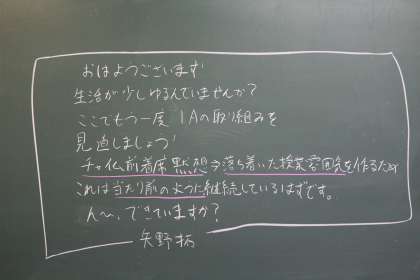 おはようございます
生活が少しゆるんでいませんか?
ここでもう一度 1Aの取り組みを
見直しましょう!
チャイム前着席 黙想⇒落ち着いた授業雰囲気を作るため
これは当たり前のように継続しているはずです。
ん〜、できていますか?
矢野 拓